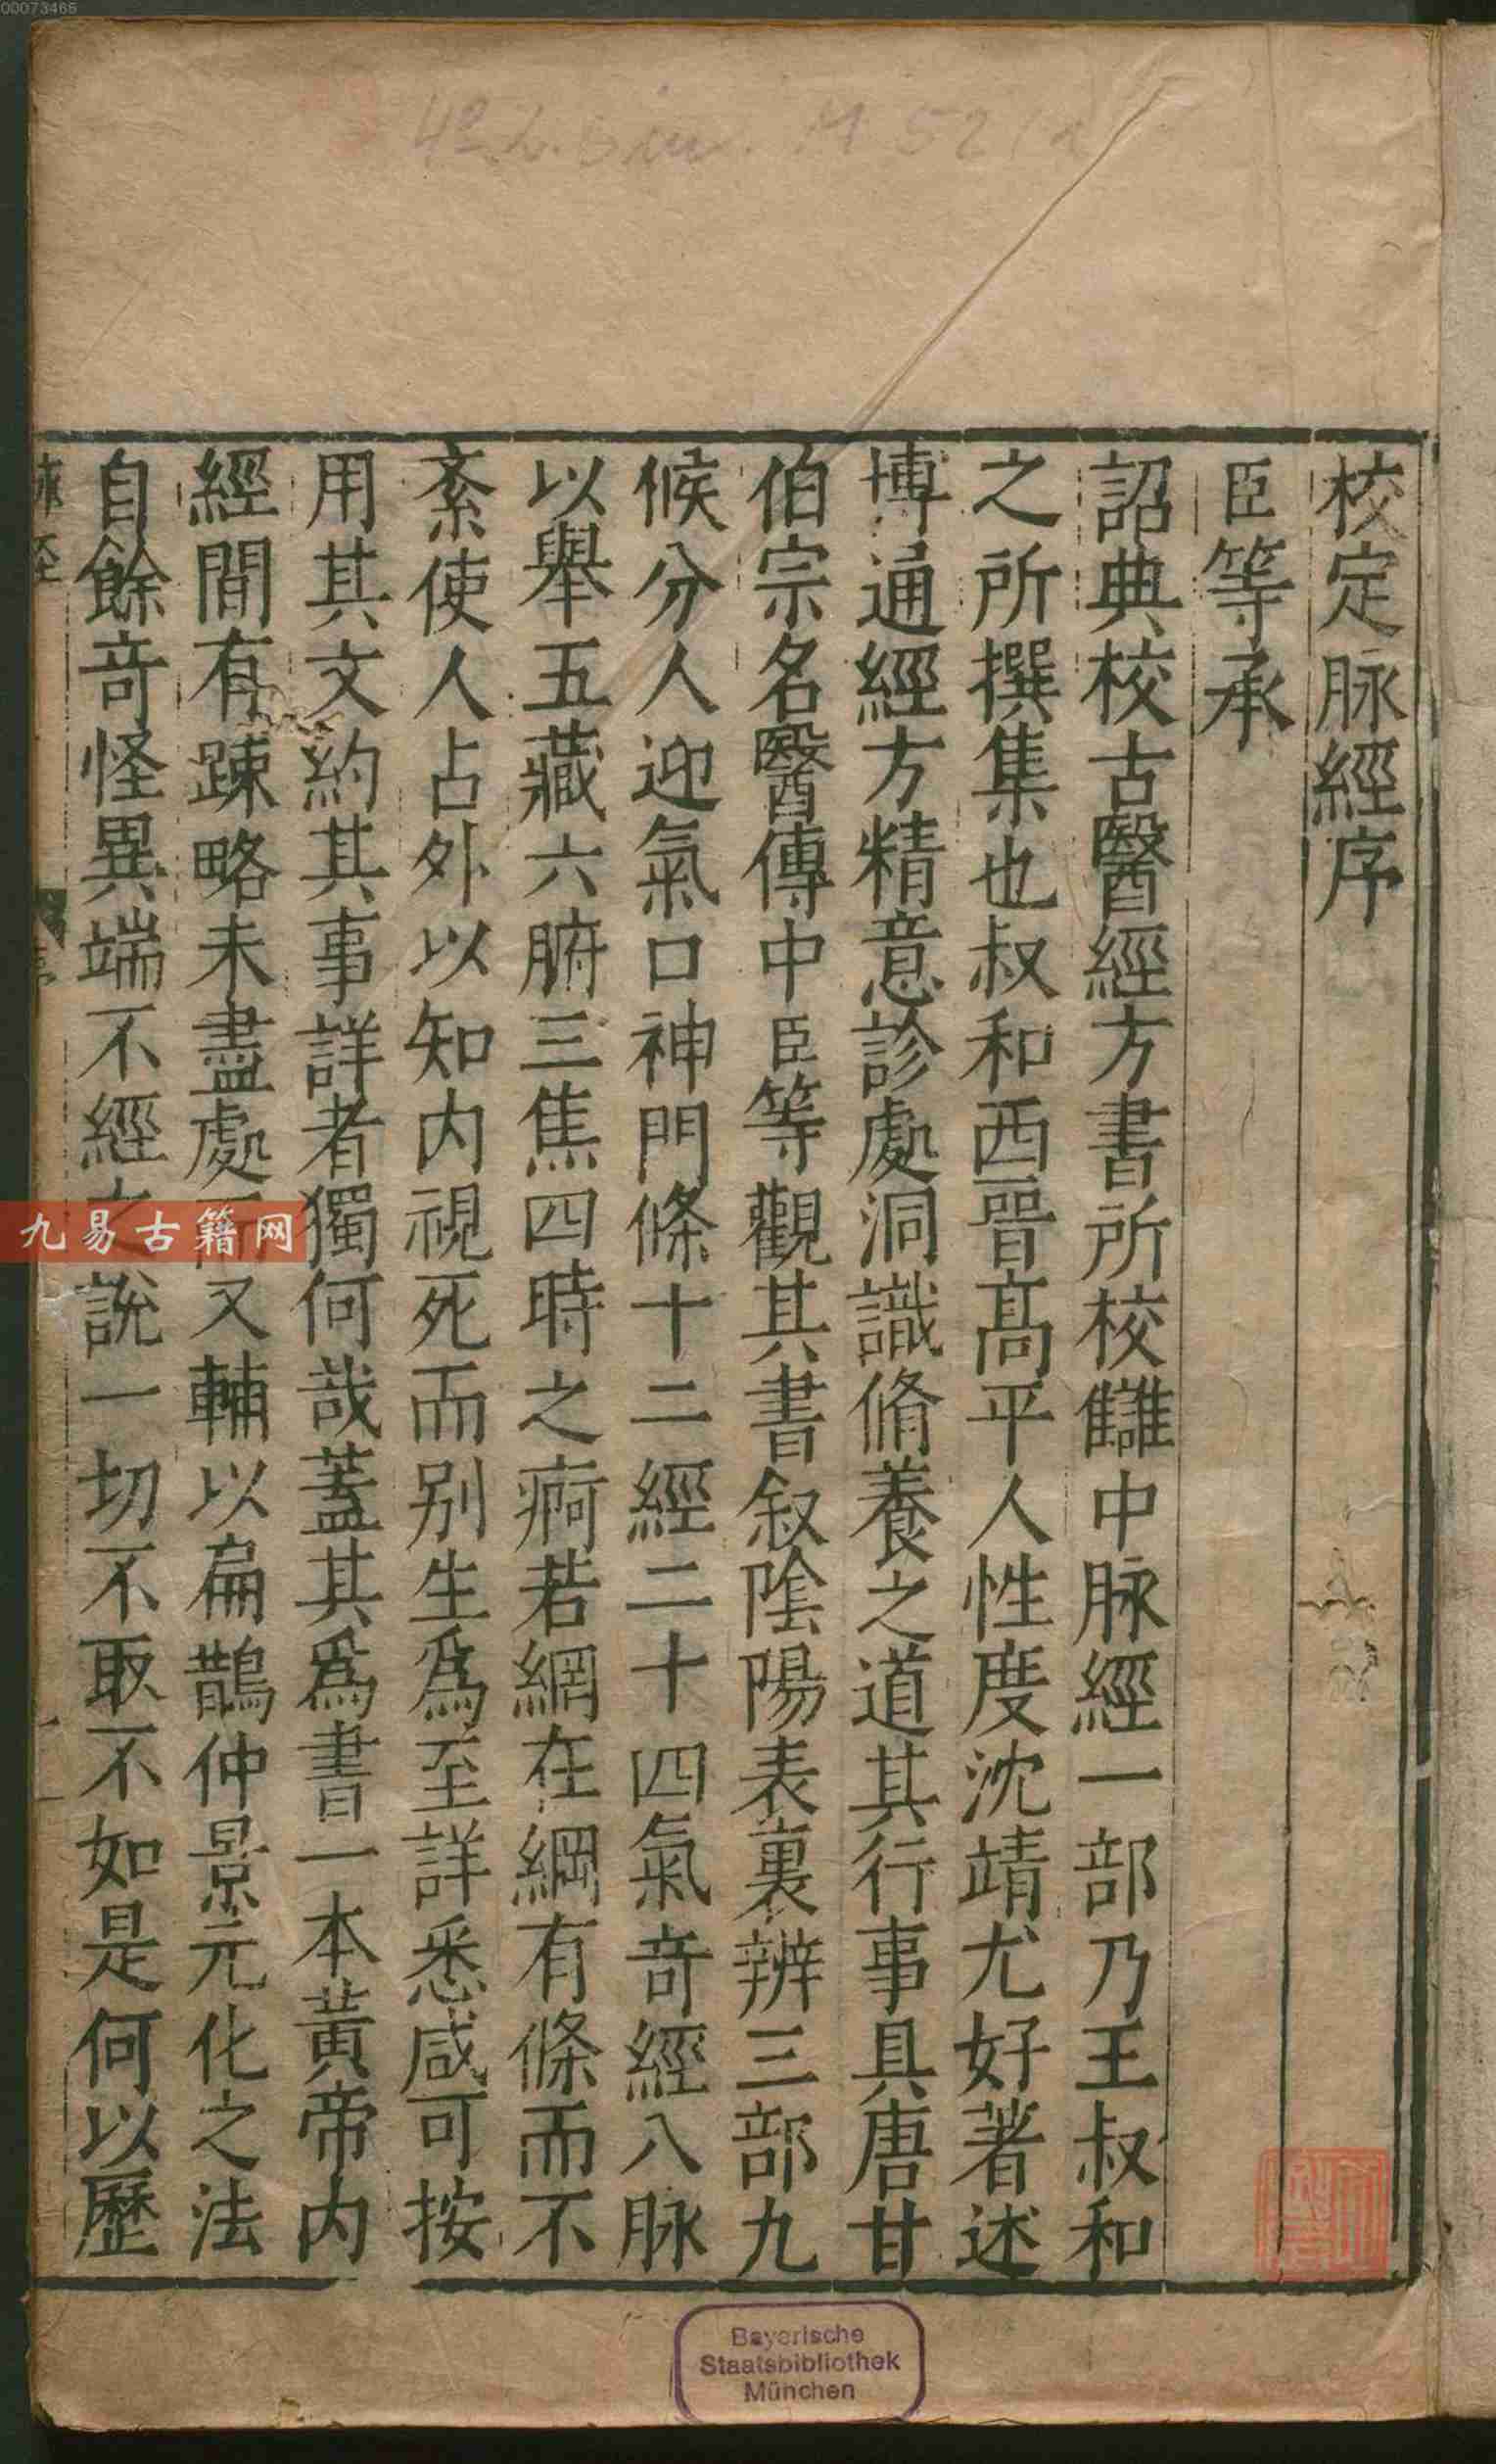 00073465
校定脉經序
臣等承
詔典校古醫經方書所校讎中脉經一部乃王叔和
之所撰集也叔和西晉高平人性度沈靖尤好著述
博通經方精意診處洞識脩養之道其行事具唐甘
伯宗名醫傳中臣等觀其書叙隂陽表裏辨三部九
候分人迎氣口神門條十二經二十四氣竒經八脉
以舉五藏六腑三焦四時之痾若網在綱有條而不
紊使人占外以知内視死而别生爲至詳悉咸可按
用其文約其事詳者獨何哉蓋其爲書一本黄帝内
經間有踈略未盡處又輔以扁鵲仲景元化之法
自餘竒怪異端不經說一切不取不如是何以歷
九易古籍网
Bayerische
Staatsbibliothek
München